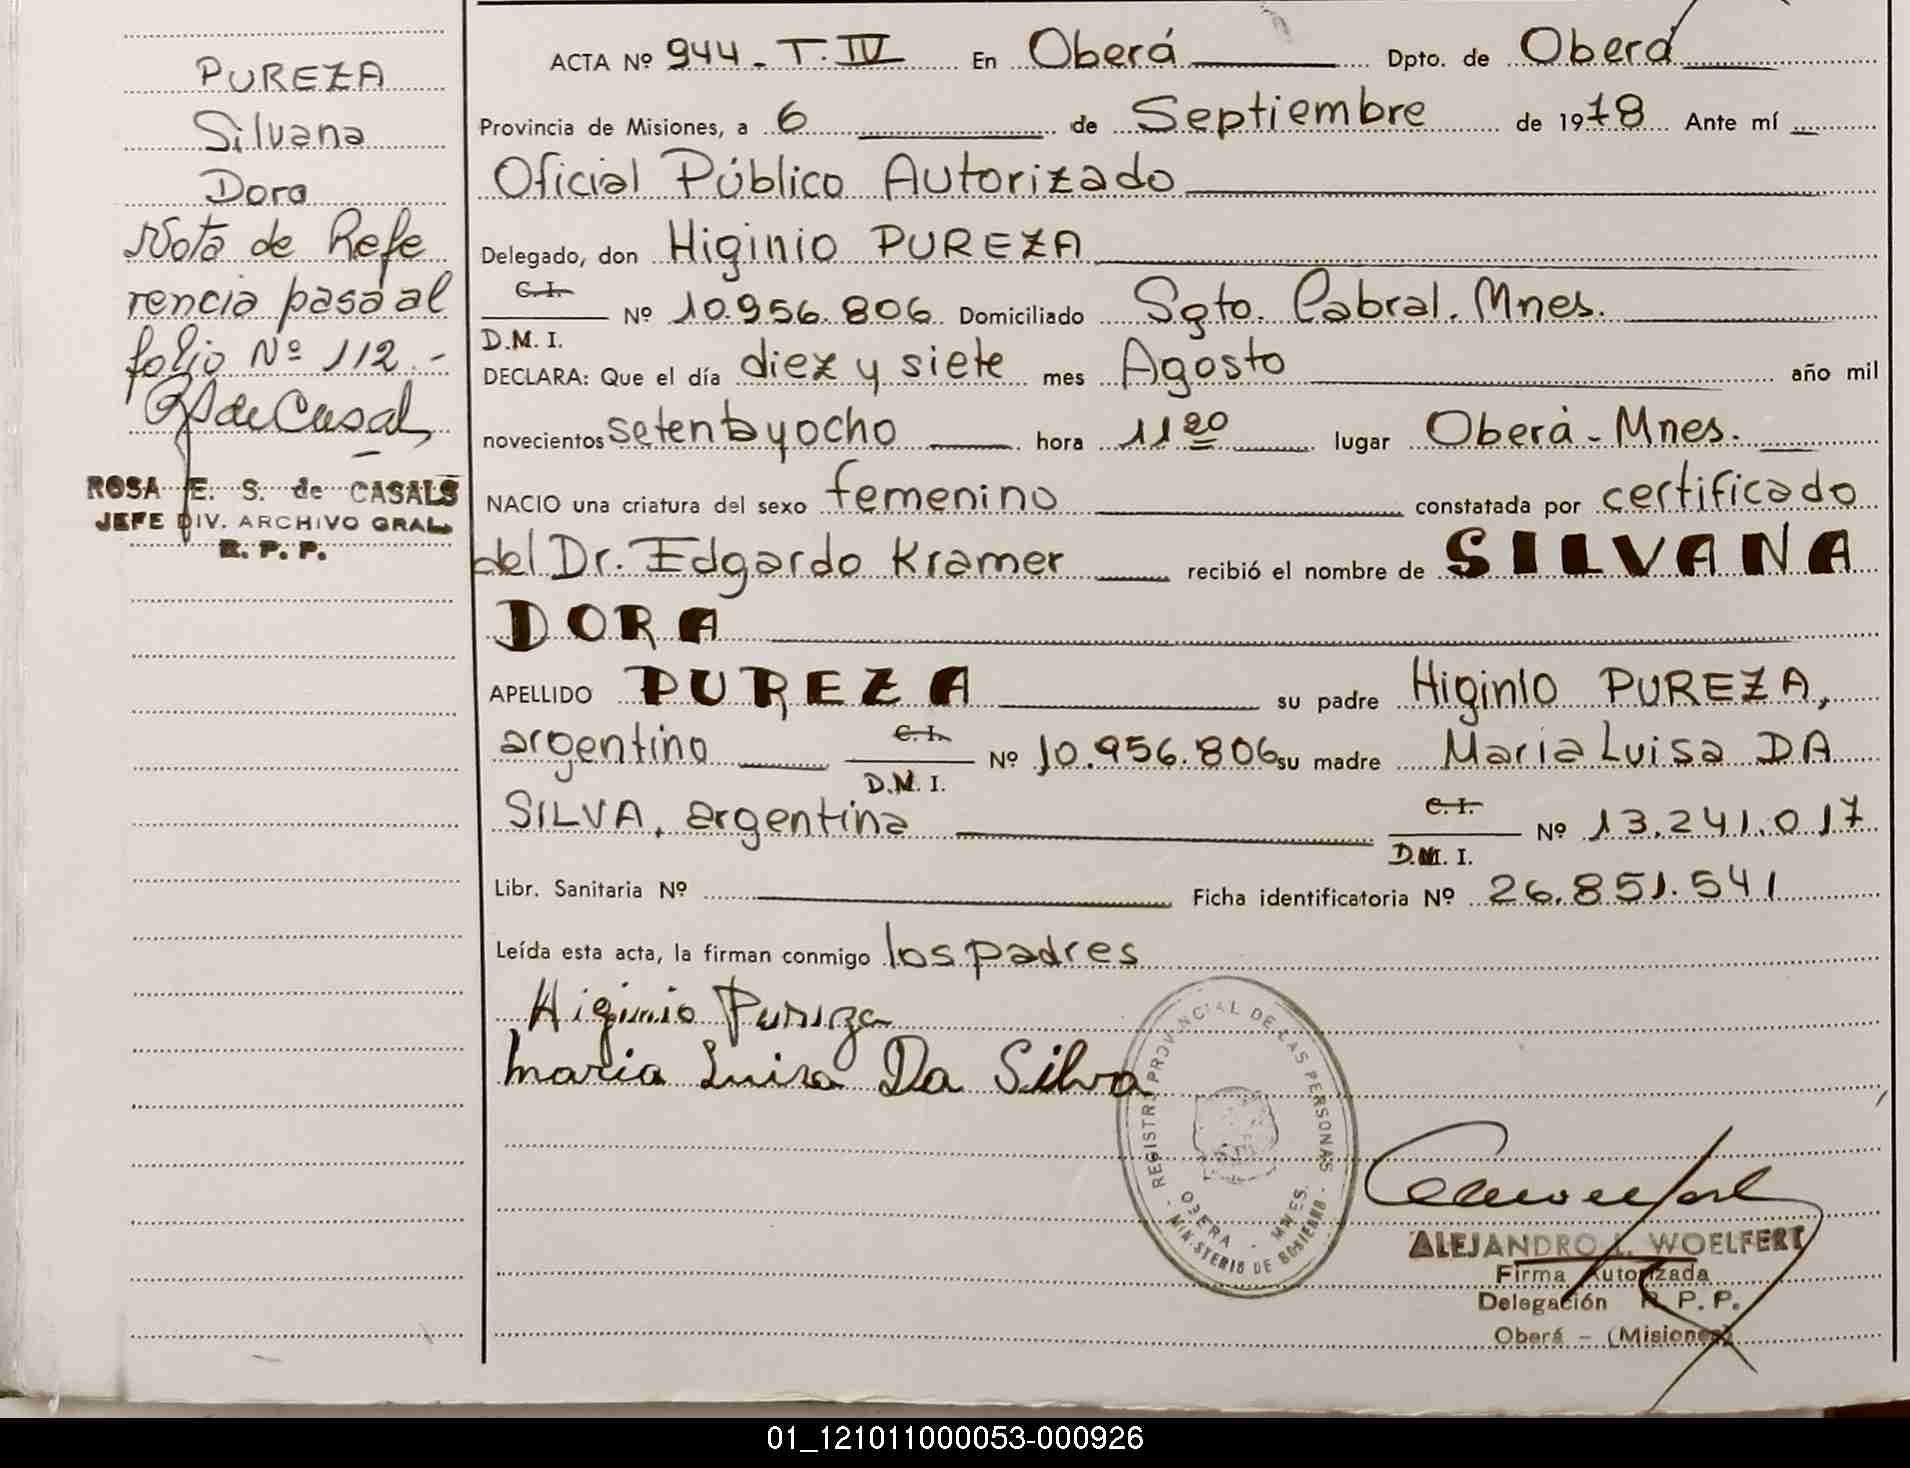 PUREZA
Silvana
Dora
Nota de Refe
rencia pasa al
folio Nº 112.-
ROSA E. S. de CASALS
JEFE DIV. ARCHIVO GRAL.
R. P. P.
ACTA Nº 944 - T. IV En Oberá Dpto. de Oberá
Provincia de Misiones, a 6 de Septiembre de 1978 Ante mí
Oficial Público Autorizado
Delegado, don Higinio PUREZA
C.I.
Nº 10.956.806 Domiciliado Sgto. Cabral. Mnes.
D.M.I.
DECLARA: Que el día diez y siete mes Agosto año mil
novecientos setentayocho hora 11 20 lugar Oberá - Mnes.
NACIO una criatura del sexo femenino constatada por certificado
del Dr. Edgardo Kramer recibió el nombre de SILVANA
DORA
APELLIDO PUREZA su padre Higinio PUREZA,
argentino C.I. Nº 10.956.806 su madre Maria Luisa DA
D.M.I.
SILVA, argentina C.I. Nº 13.241.017
D.M.I.
Libr. Sanitaria Nº Ficha identificatoria Nº 26.851.541
Leída esta acta, la firman conmigo los padres
Higinio Pureza
Maria Luisa Da Silva
REGISTRO PROVINCIAL DE LAS PERSONAS
OBERA - MNES.
- MINISTERIO DE GOBIERNO -
ALEJANDRO L. WOELFERT
Firma Autorizada
Delegación R. P. P.
Oberá - (Misiones)
01_121011000053-000926